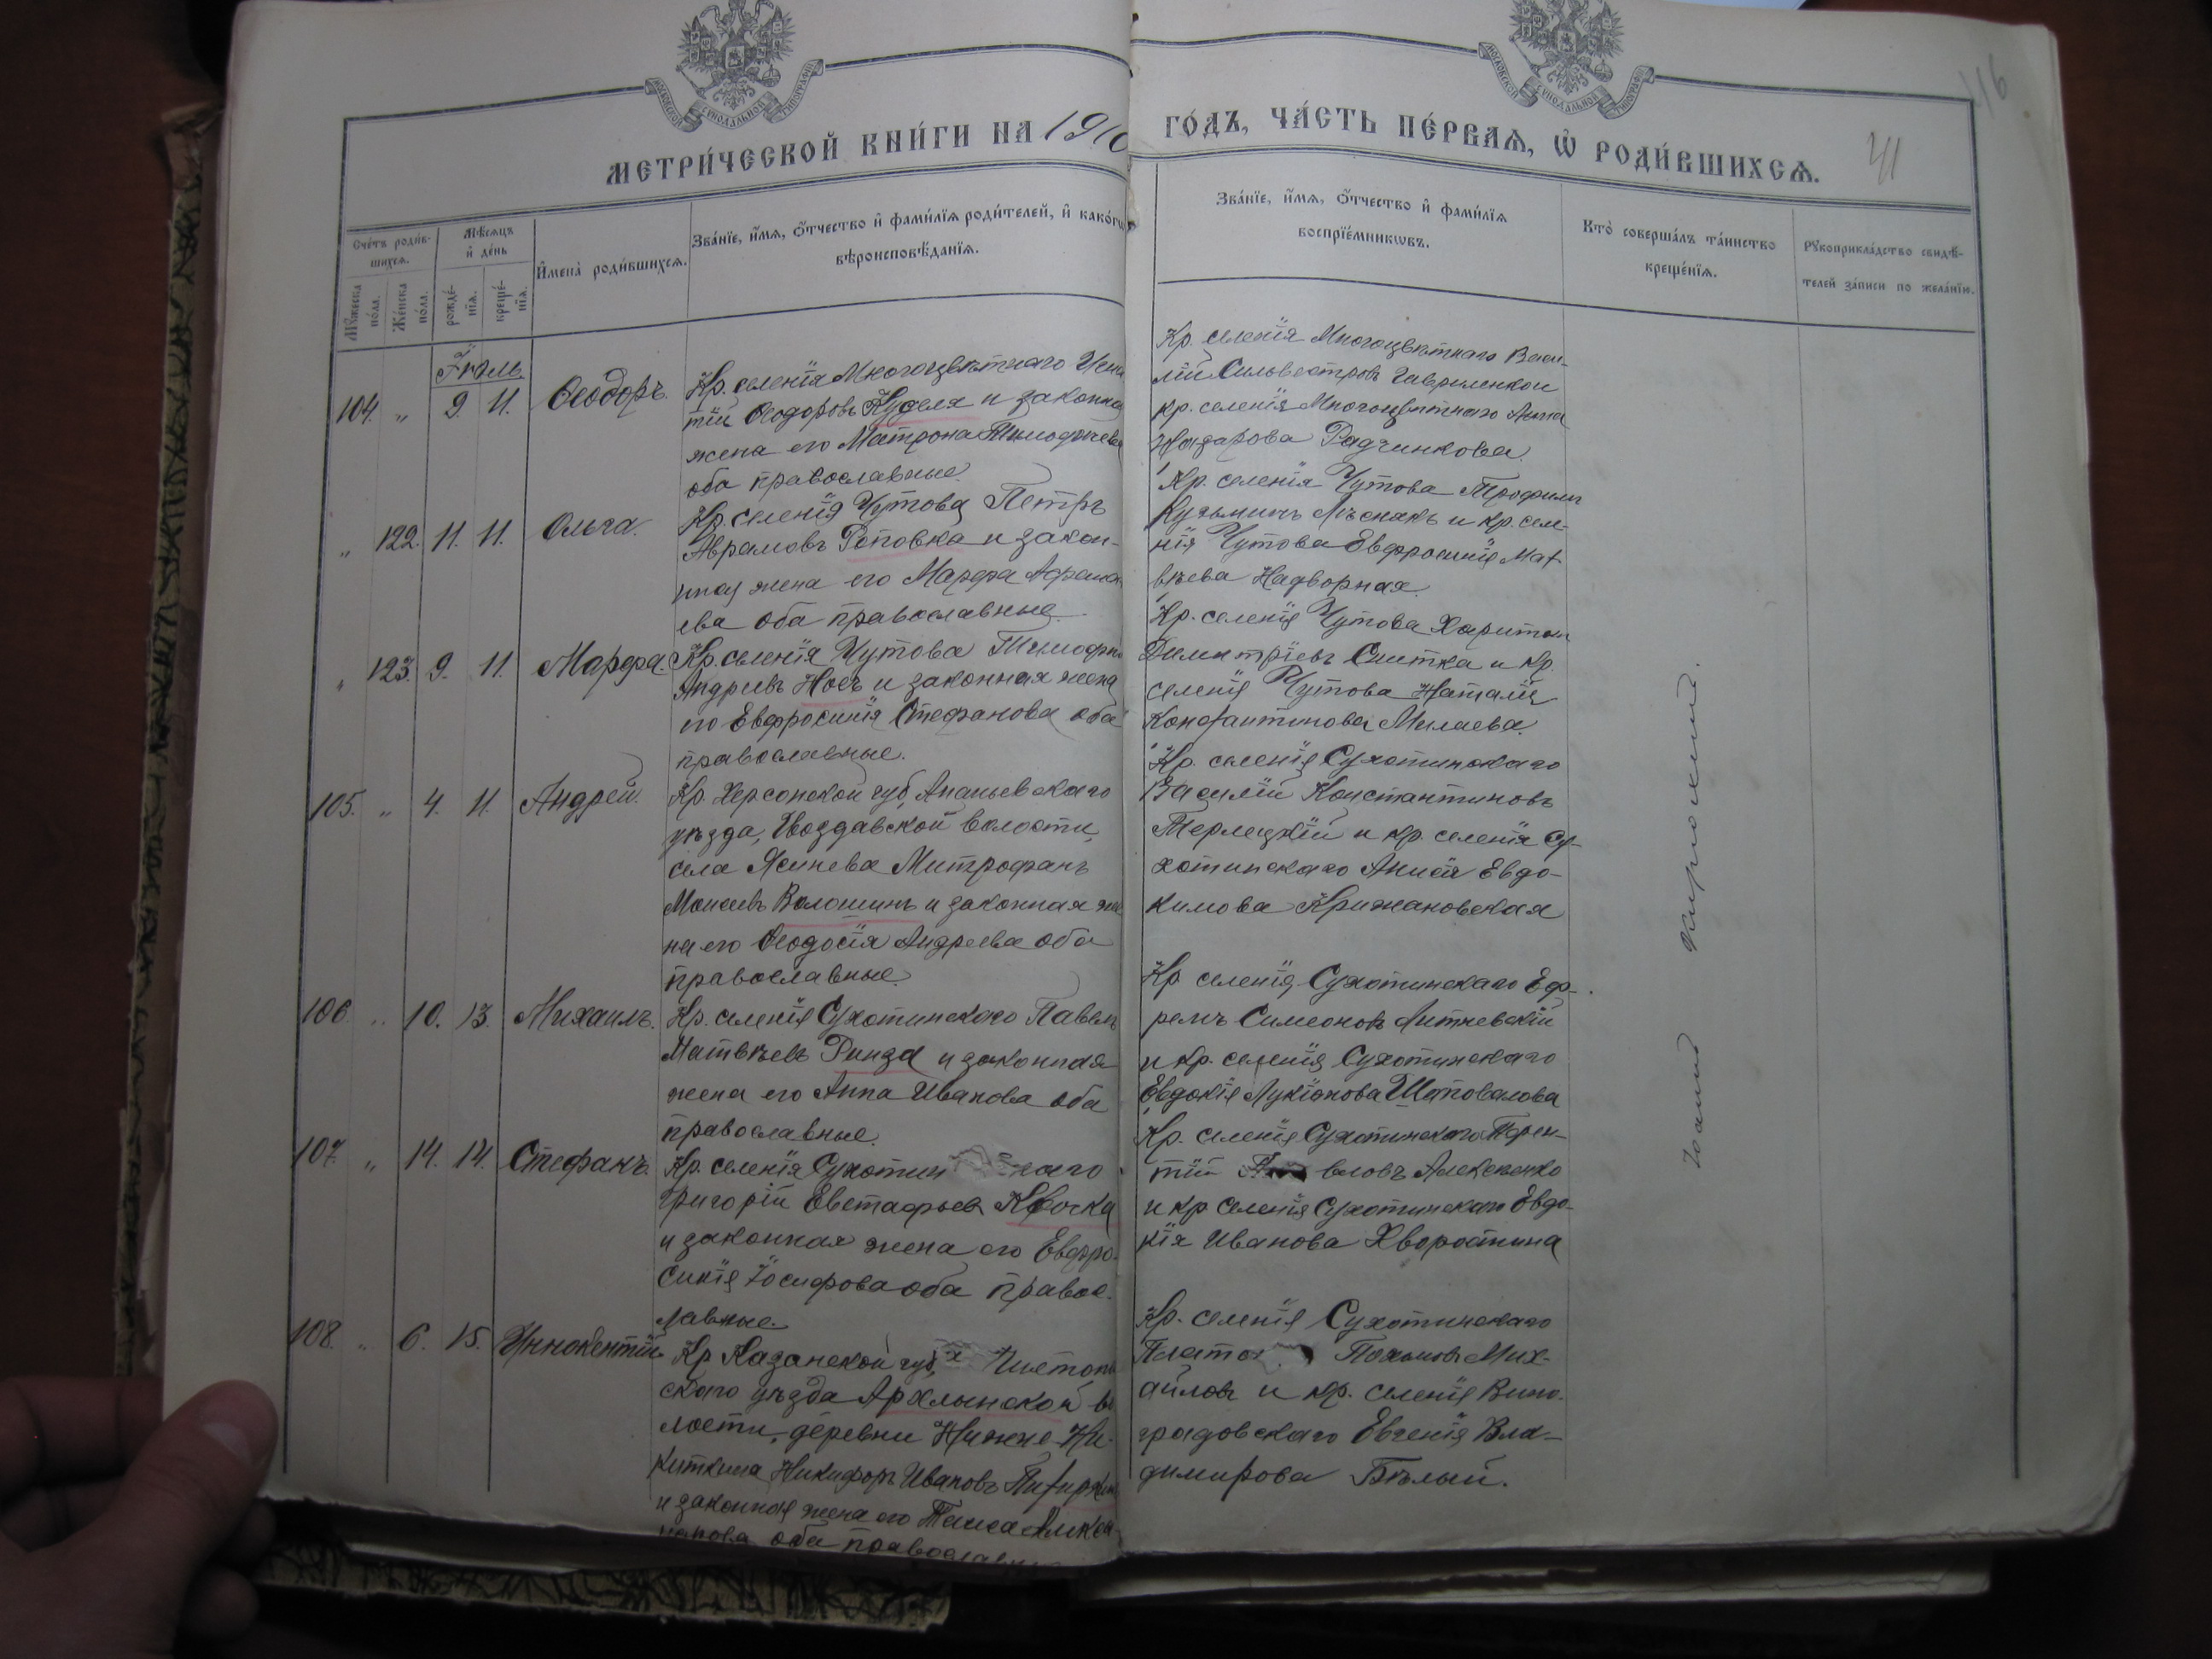 МОСКОВСКОЙ СУНОДАЛЬНОЙ ТИПОГРАФІИ
МОСКОВСКОЙ СУНОДАЛЬНОЙ ТИПОГРАФІИ
116
МЕТРИ́ЧЕСКОЙ КНИ́ГИ НА 1910 ГО́ДЪ, ЧА́СТЬ ПЕ́РВАѦ, Ѡ҆ РОДИ́ВШИХСѦ.
41
Сче́тъ роди́в-
шихсѧ.
Мꙋ́жеска по́ла.
Же́нска по́ла.
Мѣ́сѧцъ
и҆ де́нь
рожде́-
нїѧ.
креще́-
нїѧ.
И҆мена̀ роди́вшихсѧ.
Зва́нїе, и҆́мѧ, ѻ҆́тчество и҆ фами́лїѧ роди́телей, и҆ како́гѡ
вѣроисповѣ́данїѧ.
Зва́нїе, и҆́мѧ, ѻ҆́тчество и҆ фами́лїѧ
воспрїе́мникѡвъ.
Кто̀ соверша́лъ та́инство
креще́нїѧ.
Рꙋкоприкла́дство свидѣ́-
телей за́писи по жела́нїю.
Іюль
104. „ 9. 11. Ѳеодоръ.
Кр. селенія Многоцвѣтнаго
тій Ѳеодоровъ Куделя и законная
жена его Матрона Тимофѣева
оба православные.
Кр. селенія Многоцвѣтнаго Васи-
лій Сильвестровъ Гавриленко и
кр. селенія Многоцвѣтнаго Анна
Назарова Радченкова.
„ 122. 11. 11. Ольга.
Кр. селенія Чутова Петръ
Аврамовъ Роповка и закон-
ная жена его Марфа
ева оба православные.
Кр. селенія Чутова Трофимъ
Кузьминъ Лѣснякъ и кр. селе-
нія Чутова Евфросинія Мат-
вѣева Надворная.
„ 123. 9. 11. Марфа.
Кр. селенія Чутова Тимофей
Андреевъ Носъ и законная жена
его Евфросинія Стефанова оба
православные.
Кр. селенія Чутова Харитонъ
Димитріевъ Снитка и кр.
селенія Чутова Наталія
Константинова Милаева.
105. „ 4. 11. Андрей.
Кр. Херсонской губ, Ананьевскаго
уѣзда, Гвоздавской волости,
села Ясинева Митрофанъ
Моисеевъ Волошинъ и законная же
на его Ѳеодосія Андреева оба
православные.
Кр. селенія Сухотинскаго
Василій Константиновъ
Терлецкій и кр. селенія Су-
хотинскаго Анисія Евдо-
кимова Крижановская
106. „ 10. 13. Михаилъ.
Кр. селенія Сухотинскаго Павелъ
Матвѣевъ Ринза и законная
жена его Анна Иванова оба
православные.
Кр селенія Сухотинскаго Еф-
ремъ Симеоновъ Литневскій
и кр. селенія Сухотинскаго
Евдокія Лукіанова Шаповалова
107. „ 14. 14. Стефанъ.
Кр. селенія Сухотинскаго
Григорій Евстафьевъ Квочка
и законная жена его Евфро-
синія Іосифова оба правос-
лавные.
Кр. селенія Сухотинскаго Терен-
тій Павловъ Алексеенко
и кр селенія Сухотинскаго Евдо-
кія Иванова Хворостина
108. „ 6. 15. Иннокентій
Кр Казанской губ, Чистополь
скаго уѣзда Архлынской во
лости, деревни Нижне-Ни-
киткина Никифоръ Ивановъ
и законная жена его Таиса
оба православные
Кр. селенія Сухотинскаго
Платонъ Мих-
айловъ и кр. селенія Вино-
градовскаго Евгенія Вла-
димирова Бѣлый.
Іоаннъ